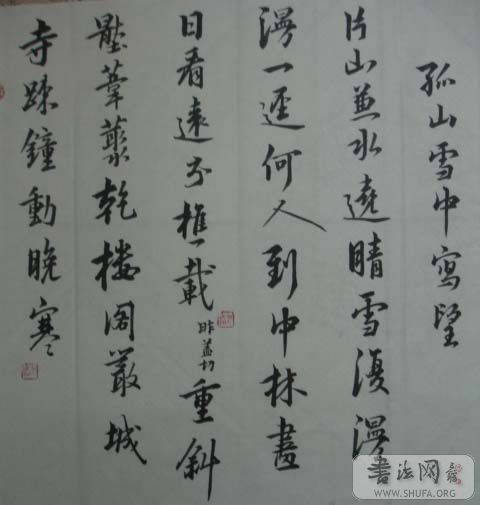 孤山雪中寫望
片山兼水遶晴雪復漫
漫一逕何人到中林盡
日看遠分樵載重斜
壓葦藂乾樓閣嚴城
寺踈鐘動晚寒
書法网
WWW.SHUFA.ORG